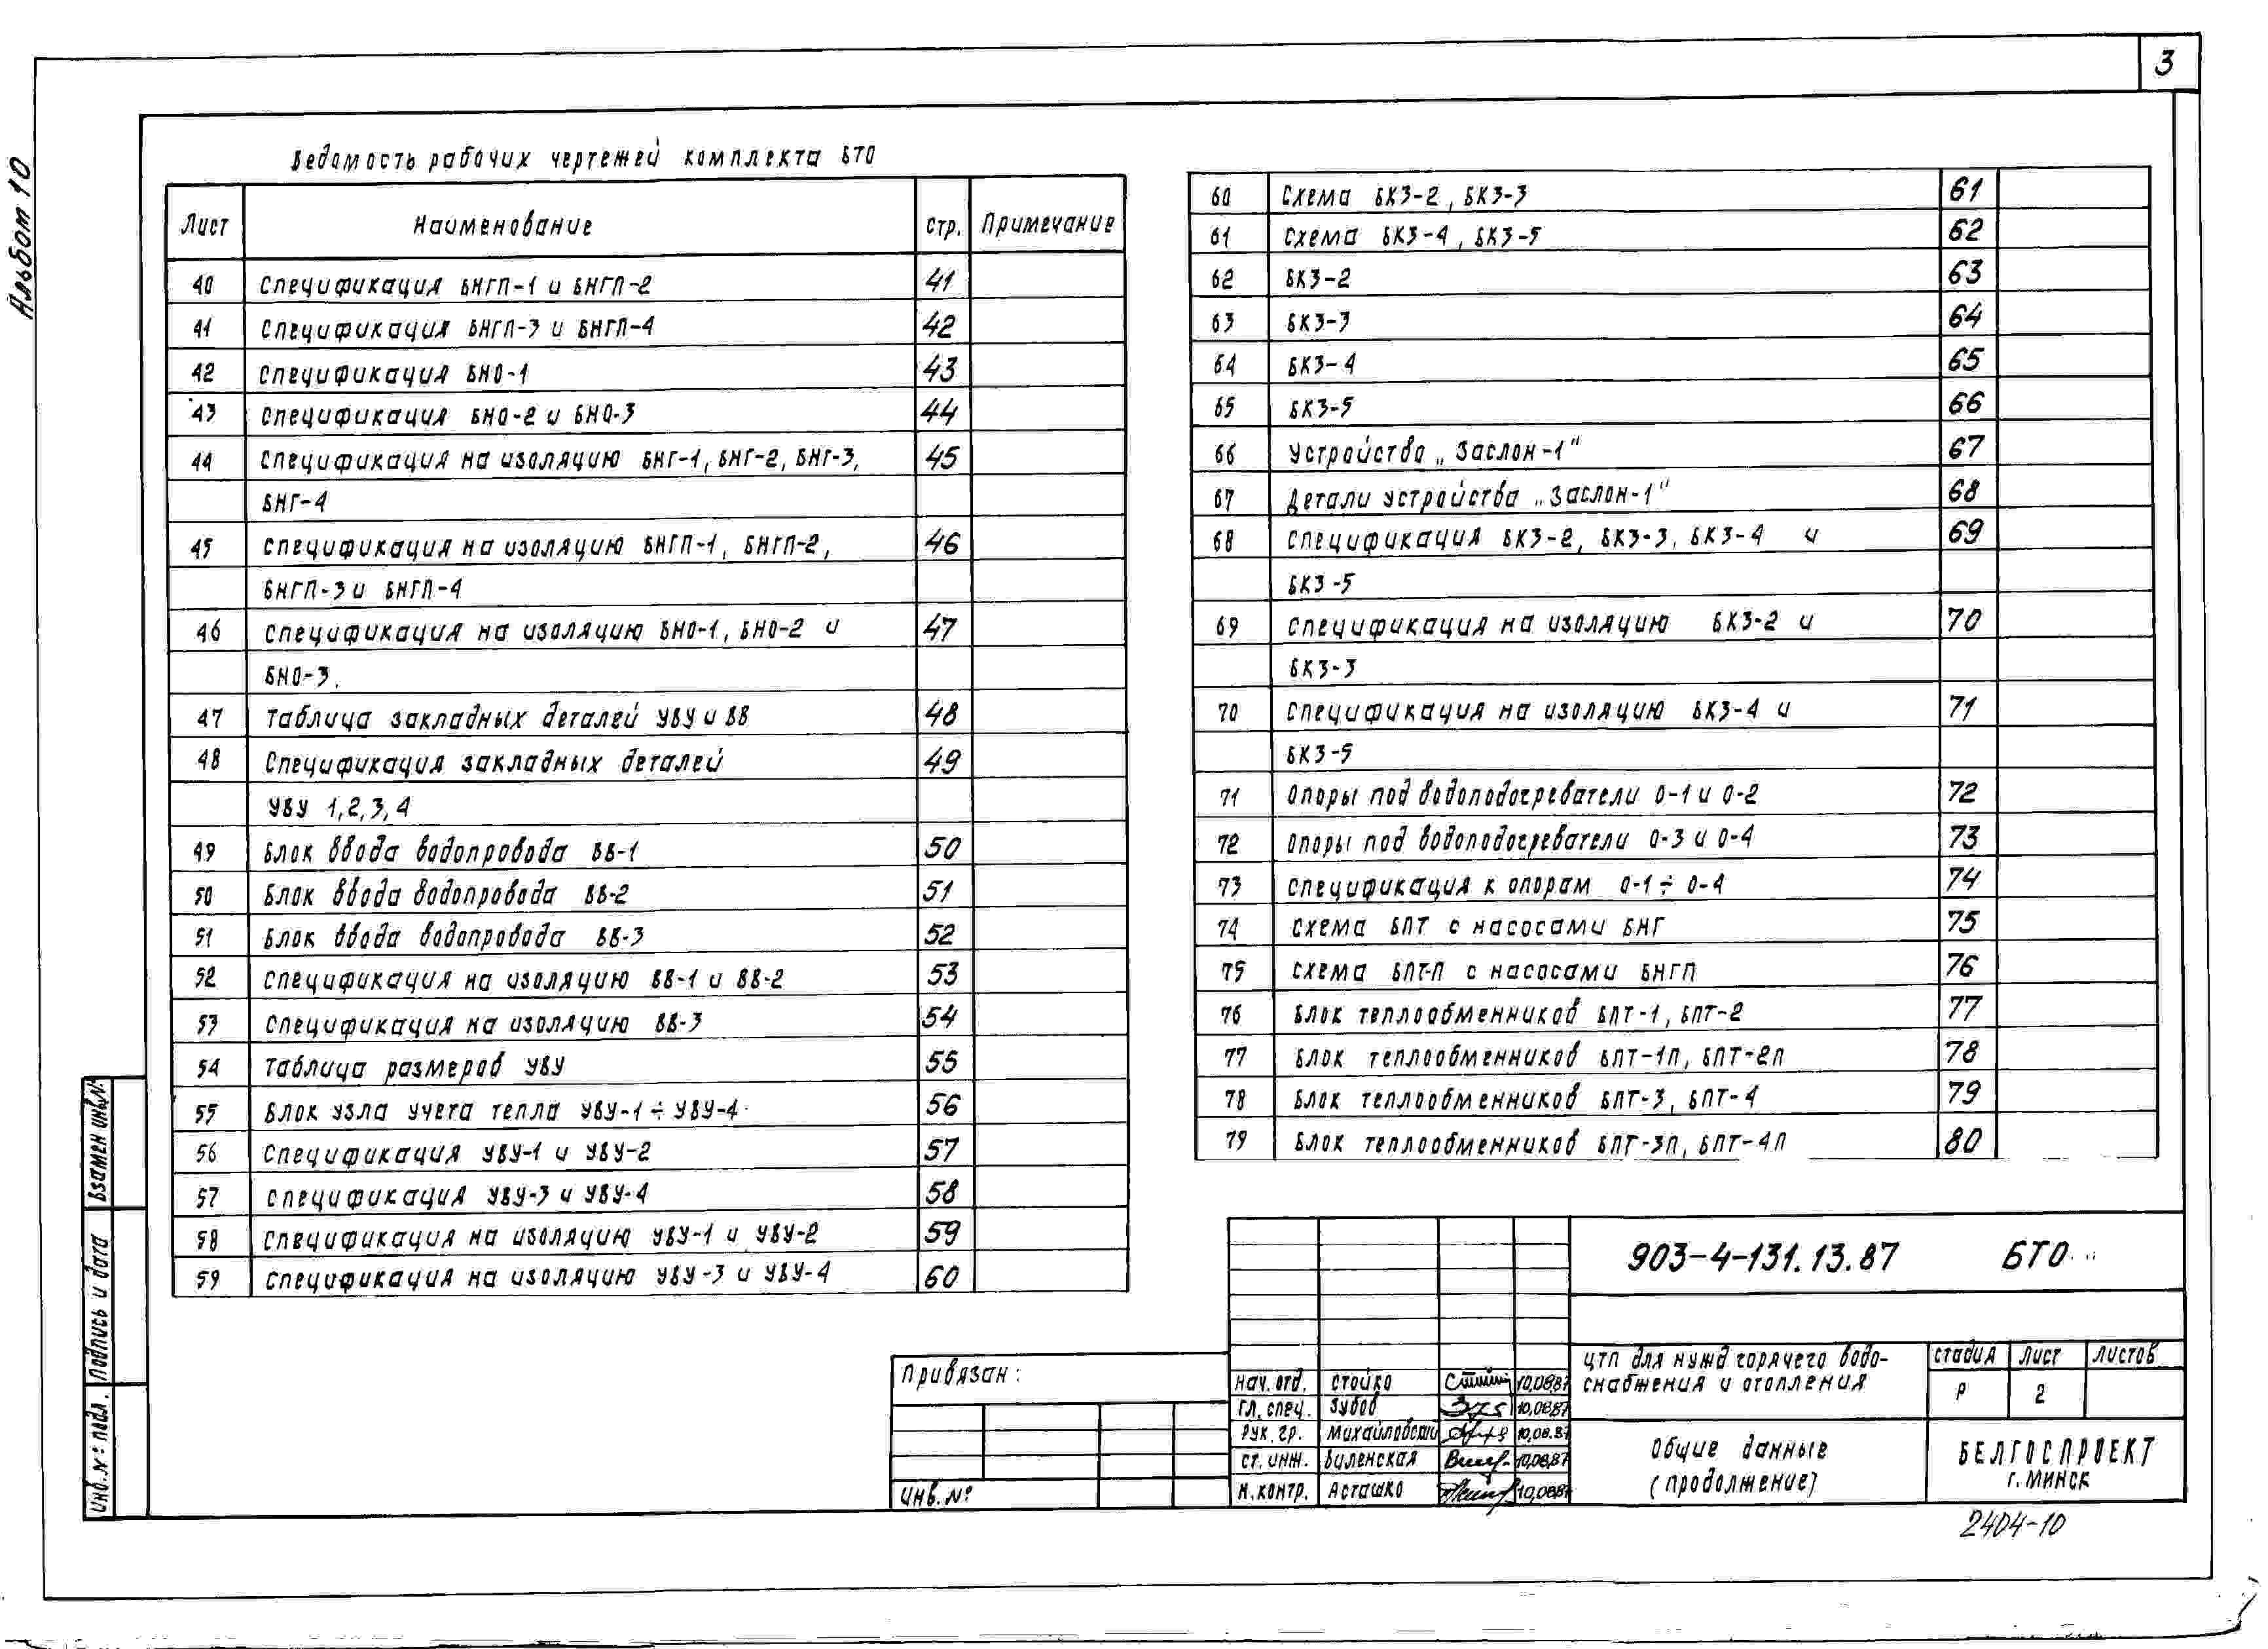 3
Альбом 10
Ведомость рабочих чертежей комплекта БТО
Лист Наименование Стр. Примечание
40 Спецификация БНГП-1 и БНГП-2 41
41 Спецификация БНГП-3 и БНГП-4 42
42 Спецификация БНО-1 43
43 Спецификация БНО-2 и БНО-3 44
44 Спецификация на изоляцию БНГ-1, БНГ-2, БНГ-3, 45
БНГ-4
45 Спецификация на изоляцию БНГП-1, БНГП-2, 46
БНГП-3 и БНГП-4
46 Спецификация на изоляцию БНО-1, БНО-2 и 47
БНО-3.
47 Таблица закладных деталей УВУ и ВВ 48
48 Спецификация закладных деталей 49
УВУ 1,2,3,4
49 Блок ввода водопровода ВВ-1 50
50 Блок ввода водопровода ВВ-2 51
51 Блок ввода водопровода ВВ-3 52
52 Спецификация на изоляцию ВВ-1 и ВВ-2 53
53 Спецификация на изоляцию ВВ-3 54
54 Таблица размеров УВУ 55
55 Блок узла учета тепла УВУ-1÷УВУ-4 56
56 Спецификация УВУ-1 и УВУ-2 57
57 Спецификация УВУ-3 и УВУ-4 58
58 Спецификация на изоляцию УВУ-1 и УВУ-2 59
59 Спецификация на изоляцию УВУ-3 и УВУ-4 60
60 Схема БКЗ-2, БКЗ-3 61
61 Схема БКЗ-4, БКЗ-5 62
62 БКЗ-2 63
63 БКЗ-3 64
64 БКЗ-4 65
65 БКЗ-5 66
66 Устройство „Заслон-1" 67
67 Детали устройства „Заслон-1" 68
68 Спецификация БКЗ-2, БКЗ-3, БКЗ-4 и 69
БКЗ-5
69 Спецификация на изоляцию БКЗ-2 и 70
БКЗ-3
70 Спецификация на изоляцию БКЗ-4 и 71
БКЗ-5
71 Опоры под водоподогреватели О-1 и О-2 72
72 Опоры под водоподогреватели О-3 и О-4 73
73 Спецификация к опорам О-1÷О-4 74
74 Схема БПТ с насосами БНГ 75
75 Схема БПТ-П с насосами БНГП 76
76 Блок теплообменников БПТ-1, БПТ-2 77
77 Блок теплообменников БПТ-1П, БПТ-2П 78
78 Блок теплообменников БПТ-3, БПТ-4 79
79 Блок теплообменников БПТ-3П, БПТ-4П 80
Взамен инв.№
Подпись и дата
Инв.№ подл.
Привязан:
Инв. №
Нач. отд. Стойко 10.08.87
Гл. спец. Зубов 10.08.87
Рук. гр. Михайловский 10.08.87
Ст. инж. Виленская 10.08.87
Н. контр. Асташко 10.08.87
903-4-131.13.87 БТО
ЦТП для нужд горячего водо-
снабжения и отопления
Стадия Лист Листов
Р 2
Общие данные
(продолжение)
БЕЛГОСПРОЕКТ
г. МИНСК
2404-10